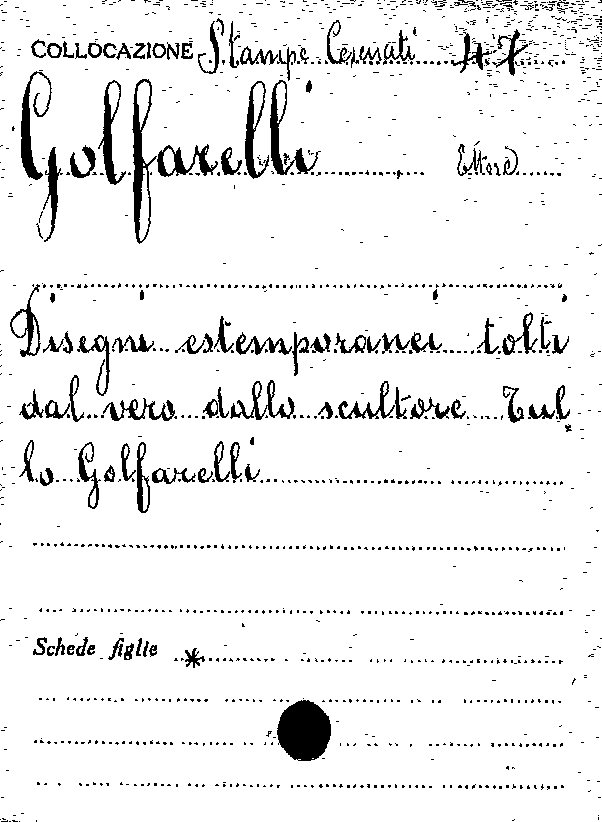 COLLOCAZIONE Stampe Cesenati 47
Golfarelli Ettore
Disegni estemporanei tolti
dal vero dallo scultore Tul
lo Golfarelli
Schede figlie *